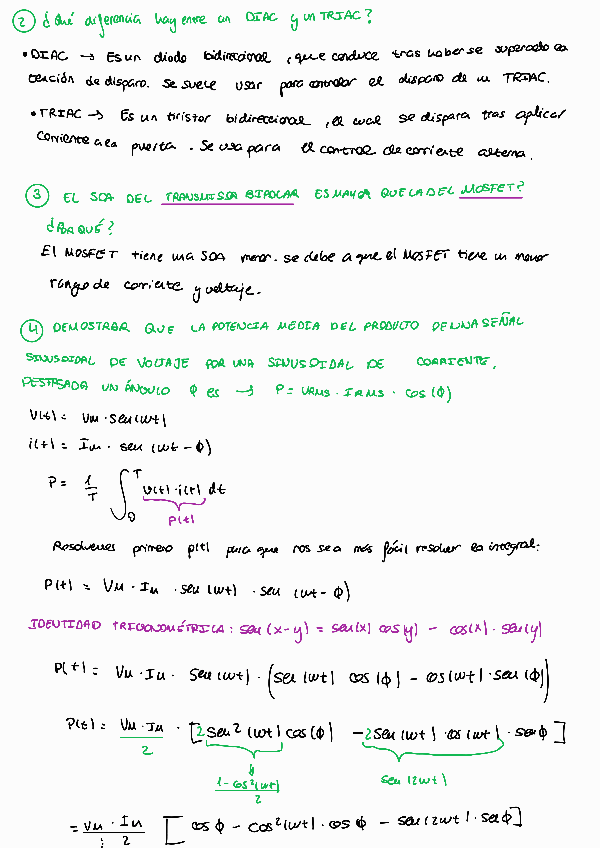 ② ¿Qué diferencia hay entre un DIAC y un TRIAC?
• DIAC → Es un diodo bidireccional, que conduce tras haberse superado la
tención de disparo. Se suele usar para controlar el disparo de un TRIAC.
• TRIAC → Es un tiristor bidireccional, el cual se dispara tras aplicar
corriente a la puerta. Se usa para el control de corriente alterna.
③ EL SOA DEL TRANSMISOR BIPOLAR ES MAYOR QUE LA DEL MOSFET?
¿POR QUÉ?
El MOSFET tiene una SOA menor. se debe a que el MOSFET tiene un menor
rango de corriente y voltaje.
④ DEMOSTRAR QUE LA POTENCIA MEDIA DEL PRODUCTO DE UNA SEÑAL
SINUSOIDAL DE VOLTAJE POR UNA SINUSOIDAL DE CORRIENTE,
DESFASADA UN ÁNGULO ϕ es → P = VRMS · IRMS · cos(ϕ)
V(t) = VM · sen(wt)
i(t) = IM · sen (wt - ϕ)
P = 1/T ∫₀ᵀ v(t) · i(t) dt
P(t)
Resolvemos primero p(t) para que nos sea más fácil resolver la integral:
P(t) = VM · IM · sen(wt) · sen (wt - ϕ)
IDENTIDAD TRIGONOMÉTRICA: sen (x-y) = sen(x) cos(y) - cos(x) · sen(y)
P(t) = VM · IM · sen(wt) · (sen(wt) cos(ϕ) - cos(wt) · sen(ϕ))
P(t) = VM · IM / 2 · [2sen²(wt) cos(ϕ) - 2sen(wt) · cos(wt) · senϕ]
1 - cos²(wt) / 2 sen(2wt)
= VM · IM / 2 [cosϕ - cos²(wt) · cosϕ - sen(2wt) · senϕ]